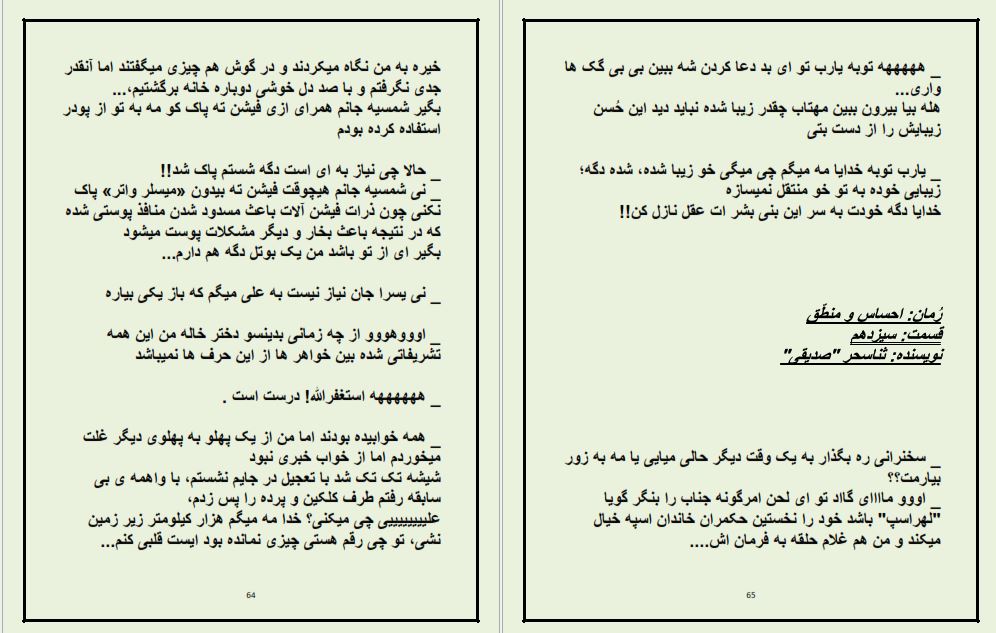 خیره به من نگاه میکردند و در گوش هم چیزی میگفتند اما آنقدر
جدی نگرفتم و با صد دل خوشی دوباره خانه برگشتیم،...
بگیر شمسیه جانم همرای ازی فیشن ته پاک کو مه به تو از پودر
استفاده کرده بودم
_ حالا چی نیاز به ای است دگه شستم پاک شد!!
_ نی شمسیه جانم هیچوقت فیشن ته بیدون «میسلر واتر» پاک
نکنی چون ذرات فیشن آلات باعث مسدود شدن منافذ پوستی شده
که در نتیجه باعث بخار و دیگر مشکلات پوست میشود
بگیر ای از تو باشد من یک بوتل دگه هم دارم...
_ نی یسرا جان نیاز نیست به علی میگم که باز یکی بیاره
_ اوووهووو از چه زمانی بدینسو دختر خاله من این همه
تشریفاتی شده بین خواهر ها از این حرف ها نمیباشد
_ هههههه استغفرالله! درست است .
_ همه خوابیده بودند اما من از یک پهلو به پهلوی دیگر غلت
میخوردم اما از خواب خبری نبود
شیشه تک تک شد با تعجیل در جایم نشستم، با واهمه ی بی
سابقه رفتم طرف کلکین و پرده را پس زدم،
علیییییییی چی میکنی؟ خدا مه میگم هزار کیلومتر زیر زمین
نشی، تو چی رقم هستی چیزی نمانده بود ایست قلبی کنم...
64
_ هههههه توبه یارب تو ای بد دعا کردن شه ببین بی بی گک ها
واری...
هله بیا بیرون ببین مهتاب چقدر زیبا شده نباید دید این حُسن
زیبایش را از دست بتی
_ یارب توبه خدایا مه میگم چی میگی خو زیبا شده، شده دگه؛
زیبایی خوده به تو خو منتقل نمیسازه
خدایا دگه خودت به سر این بنی بشر ات عقل نازل کن!!
رُمان: احساس و منطّق
قسمت: سیزدهم
نویسنده: ثناسحر "صدیقی"
_ سخنرانی ره بگذار به یک وقت دیگر حالی میایی یا مه به زور
بیارمت؟؟
_ اووو ماااای گااد تو ای لحن امرگونه جناب را بنگر گویا
"لهراسپ" باشد خود را نخستین حکمران خاندان اسپه خیال
میکند و من هم غلام حلقه به فرمان اش....
65